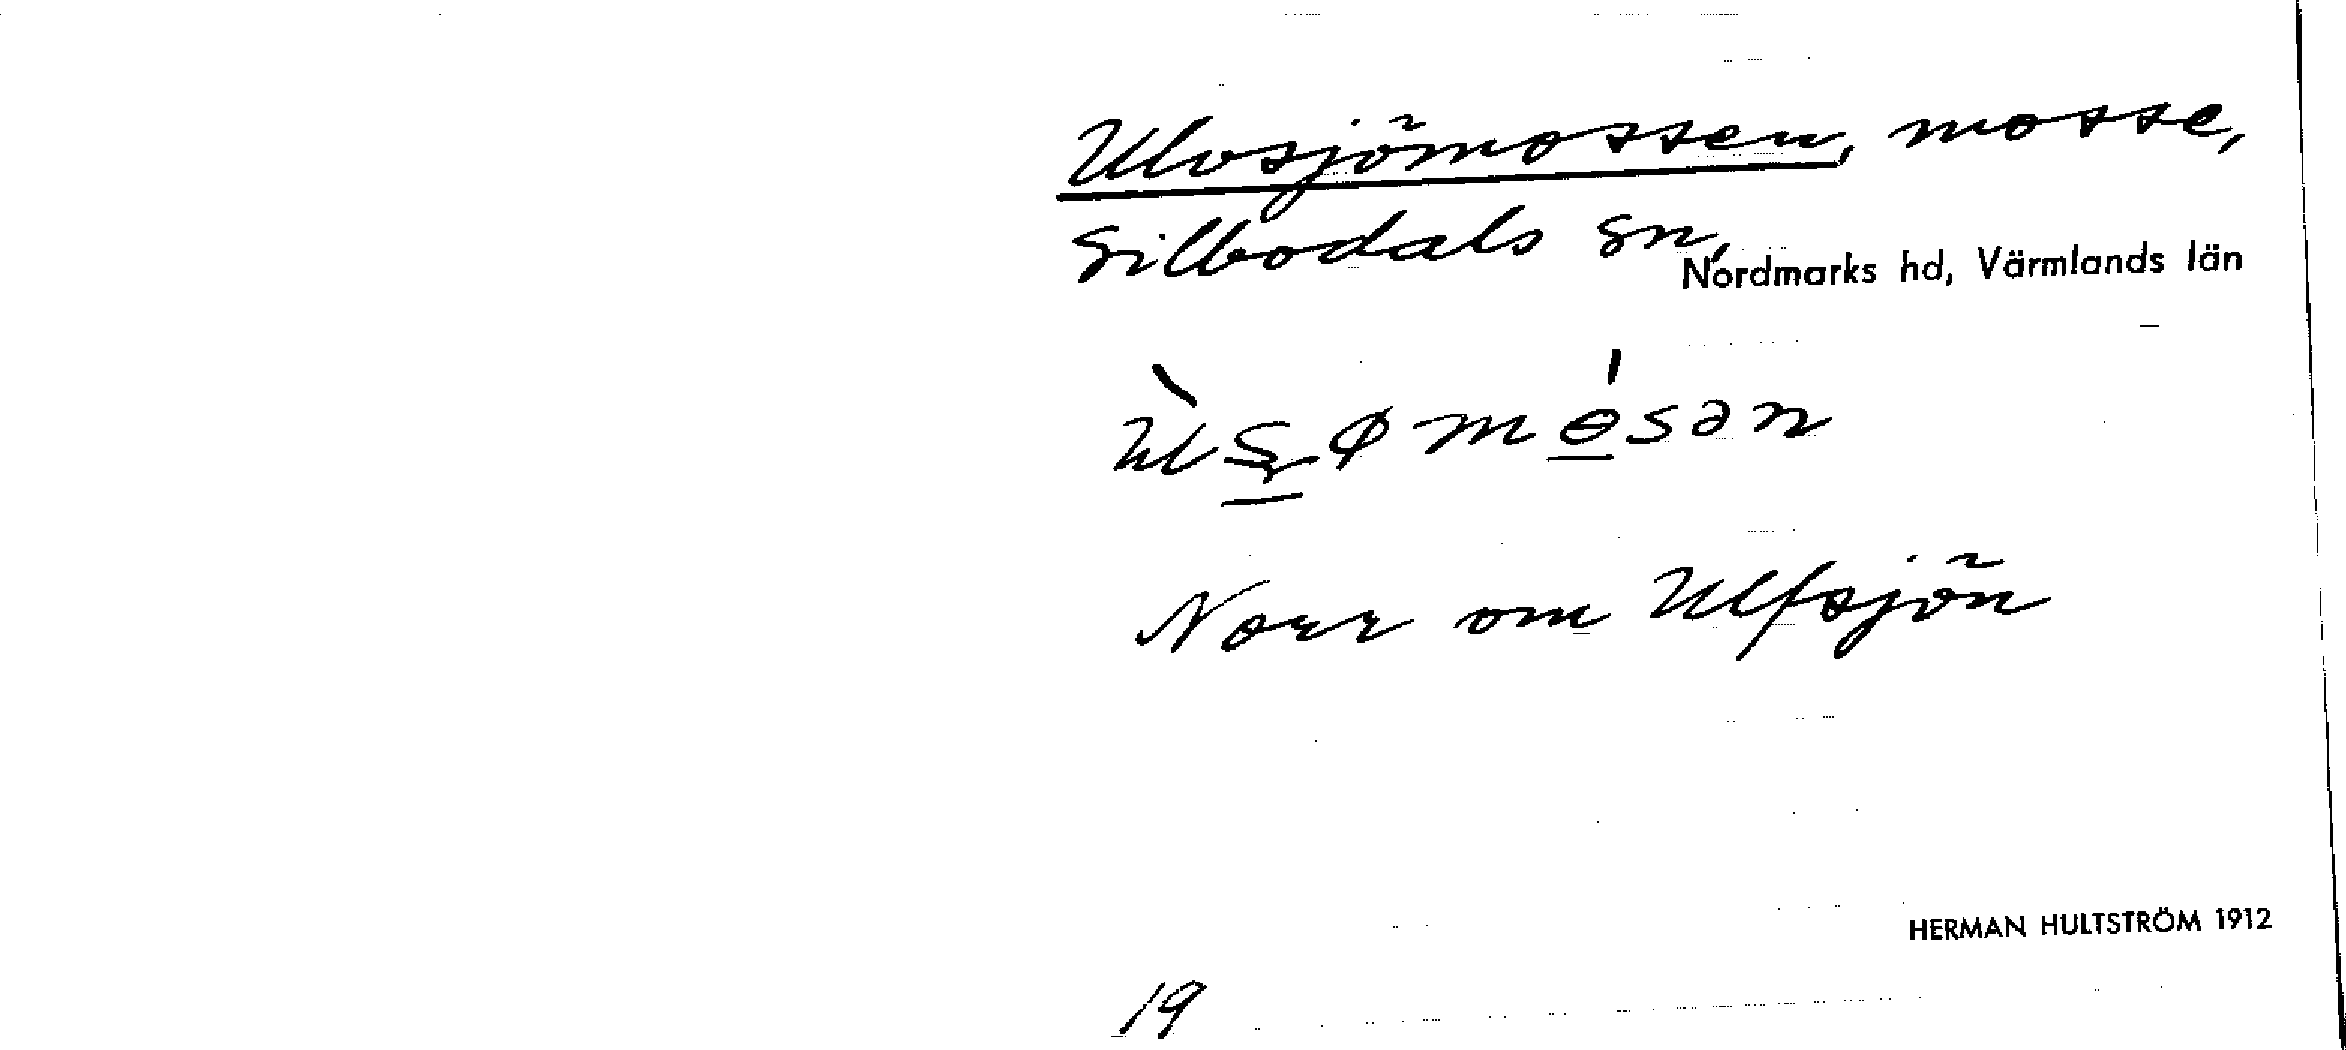 Ulvsjömossen, mosse,
Silbodals sn,
Nordmarks hd, Värmlands län
Norr om Ulfsjön
HERMAN HULTSTRÖM 1912
19